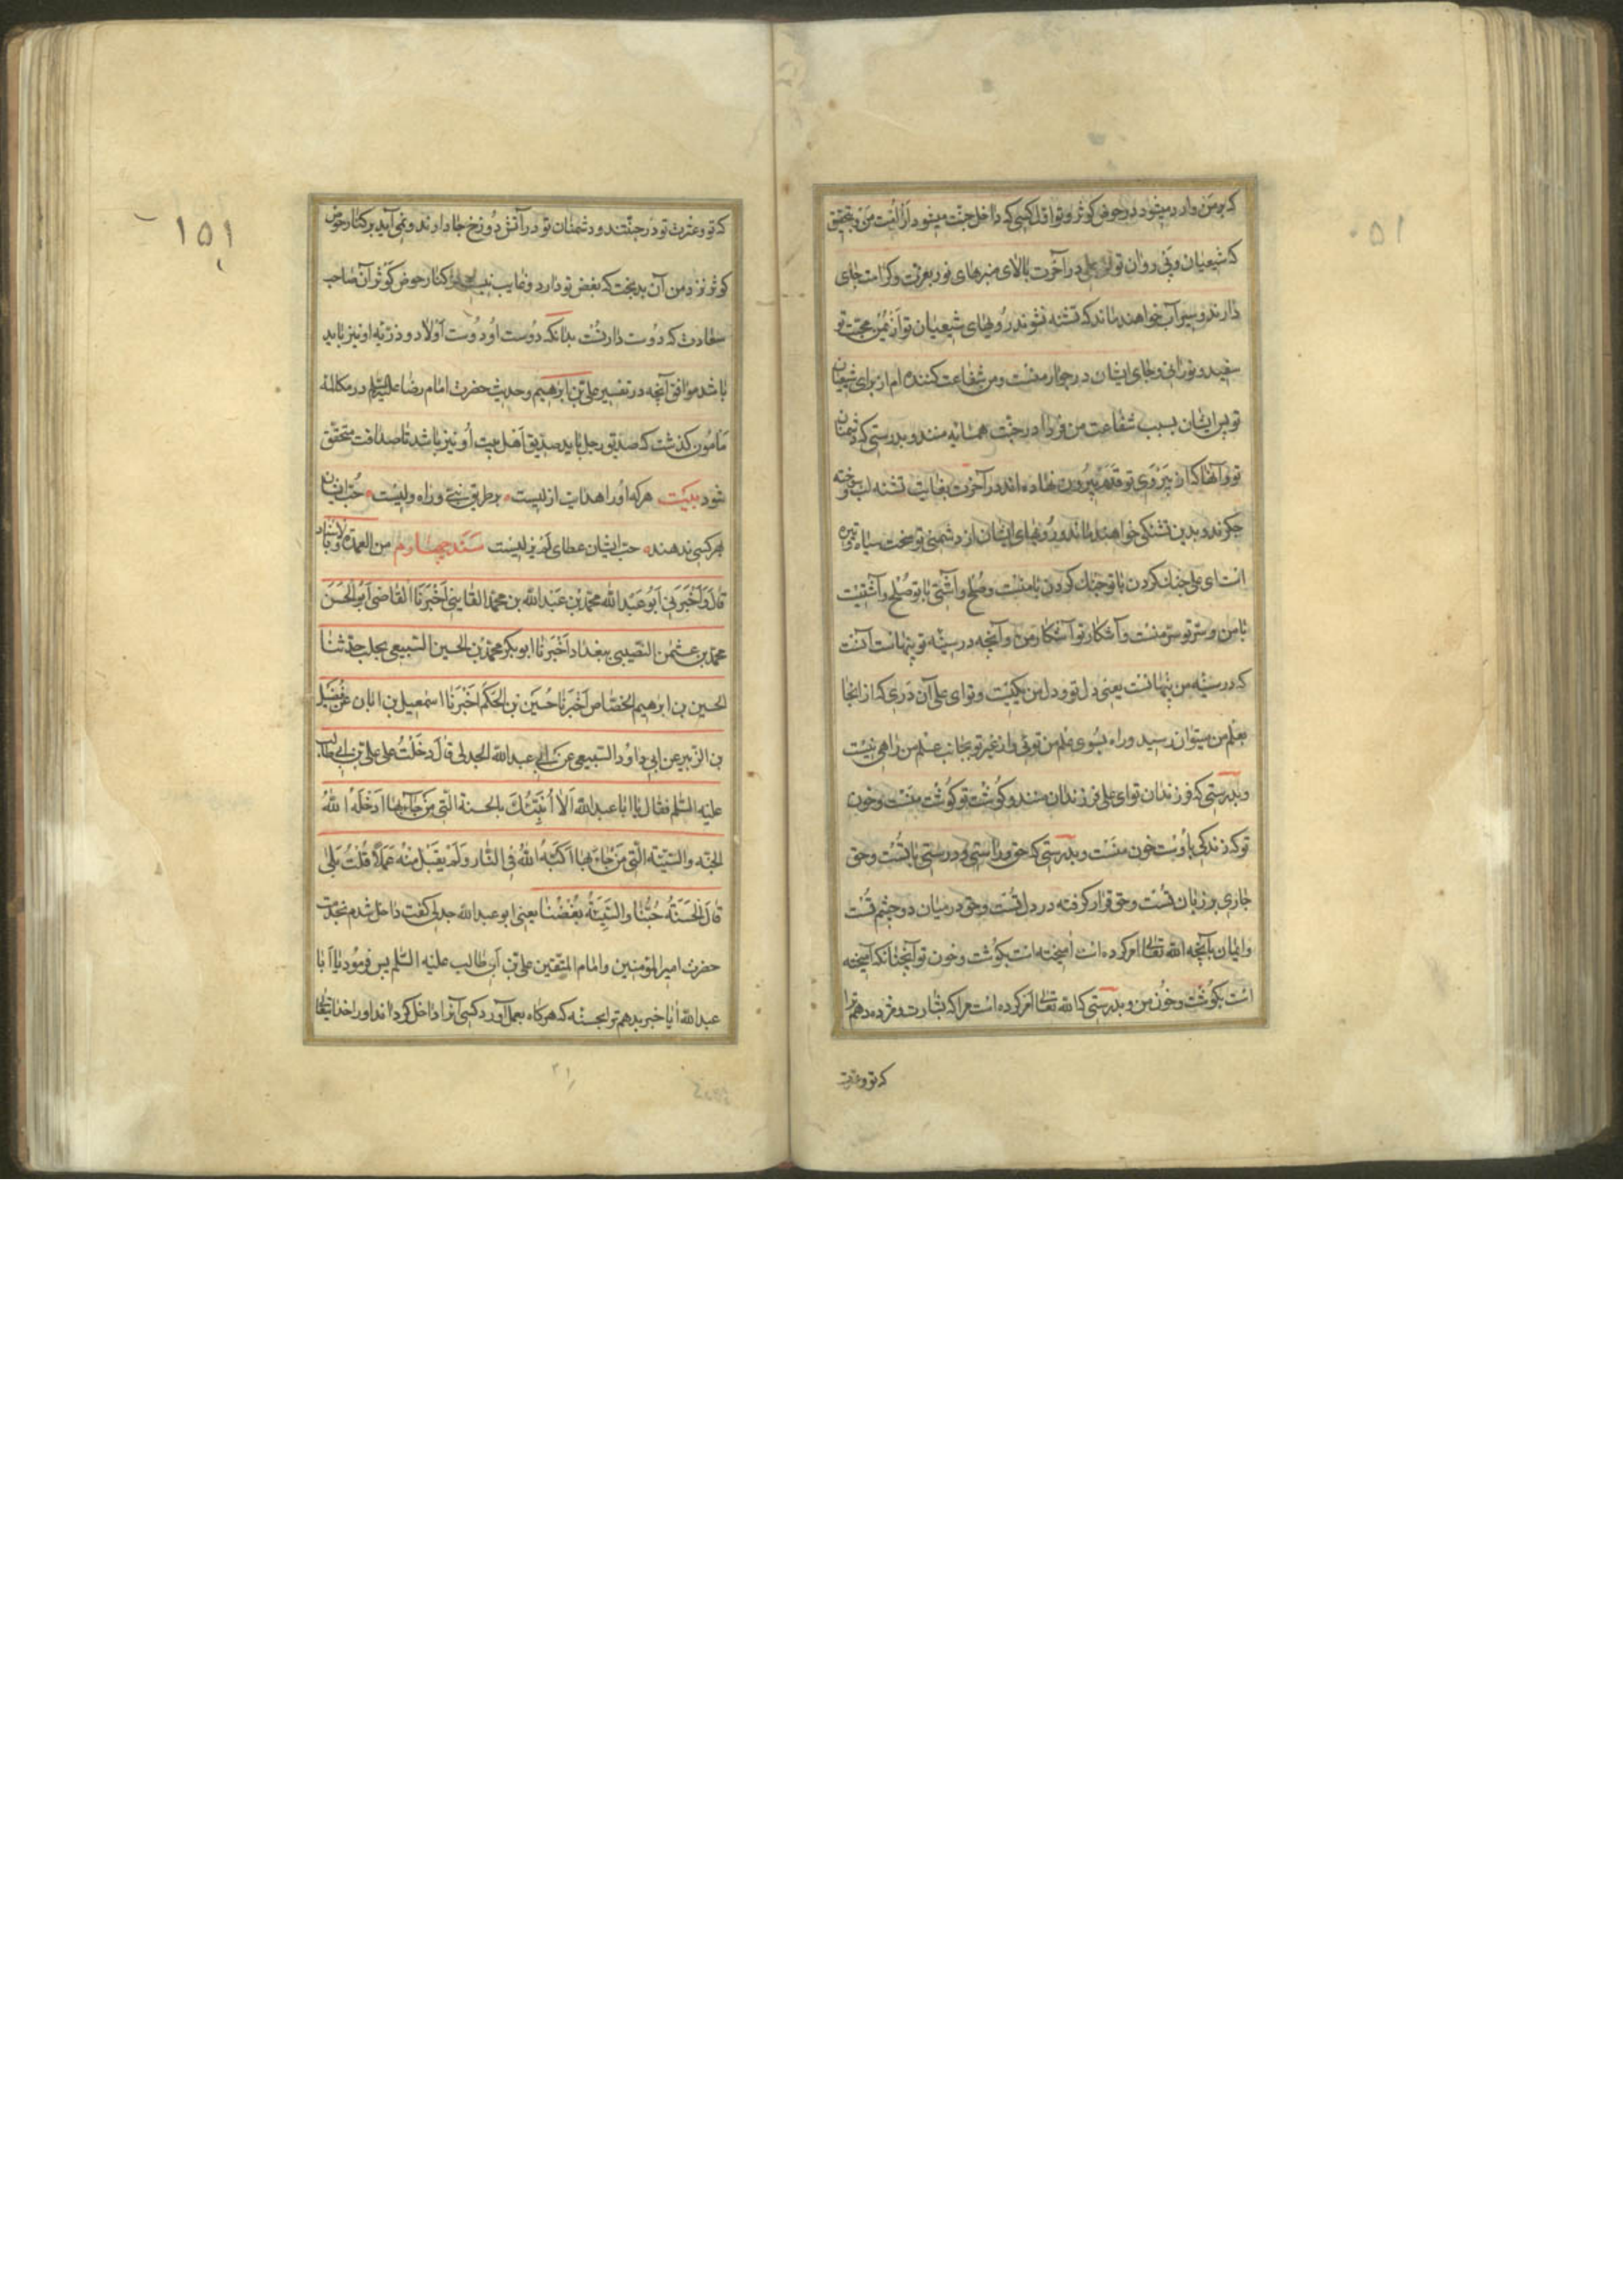 ۱۵۰
که بر من وارد میشود در حوض کوثر و تو اول کسی که داخل جنت میشود از امت من و بتحقیق
که شیعیان و پی روان تو ای علی در آخرت بالای منبرهای نور بعزت و کرامت جای
دارند و سیرآب خواهند ماند که تشنه نشوند رویهای شیعیان تو از یمن محبت تو
سفید و نورانی و جای ایشان در جوار منست و من شفاعت کننده ام از برای شیعیان
تو پس ایشان بسبب شفاعت من فردا در جنت همسایه منند و بدرستی که دشمنان
تو و آنها که از پیروی تو قدم بیرون نهاده اند در آخرت بغایت تشنه لب سوخته
جگرند و بدین تشنگی خواهند ماند و رویهای ایشان از دشمنی تو سخت سیاه و تیره
است ای علی جنگ کردن با تو جنگ کردن با منست و صلح و آشتی با تو صلح و آشتیست
با من و سر تو سر منست و آشکار تو آشکار من و آنچه در سینه تو پنهانست آنست
که در سینه من پنهانست یعنی دل تو و دل من یکیست و تو ای علی آن دری که از انجا
بعلم من میتوان رسید و راه بسوی علم من توئی و از غیر تو بجانب علم من راهی نیست
و بدرستی که فرزندان تو ای علی فرزندان منند و گوشت تو گوشت منست و خون
تو که زندگی باوست خون منست و بدرستی که حق و راستی و درستی با تست و حق
جاری بر زبان تست و حق قرار گرفته در دل تست و حق در میان دو چشم تست
و ایمان بآنچه الله تعالی امر کرده است آمیخته است بگوشت و خون تو آنچنانکه آمیخته
است بگوشت و خون من و بدرستی که الله تعالی امر کرده است مرا که بشارت و مژده دهم ترا
که تو و عترت
۱۵۱
که تو و عترت تو در جنتند و دشمنان تو در آتش دوزخ جا دارند و نمی آید بر کنار حوض
کوثر نزد من آن بدبخت که بغض تو دارد و غایب نیست از کنار حوض کوثر آن صاحب
سعادت که دوست دار تست بدانکه دوست او دوست اولاد و ذریه او نیز باید
باشد موافق آنچه در تفسیر علی بن ابرهیم و حدیث حضرت امام رضا علیه السلم در مکالمه
مأمون گذشت که صدیق رجل باید صدیق اهل بیت او نیز باشد تا صداقت متحقق
شود بیت هر که او را هدایت ازلیست بر طریق نبی و راه ولیست حب ایشان
بهر کسی ندهند حب ایشان عطای لم یزلیست سند چهارم من العمدة بالاسناد
قال و اخبرنی ابو عبد الله محمد بن عبد الله بن محمد القاینی اخبرنا القاضی ابو الحسن
محمد بن عثمن النصیبی ببغداد اخبرنا ابو بکر محمد بن الحسین السبیعی بحلب حدثنا
الحسین بن ابرهیم الخصاص اخبرنا حسین بن الحکم اخبرنا اسمعیل بن ابان عن فضیل
بن الزبیر عن ابی داود السبیعی عن ابی عبد الله الجدلی قال دخلت علی علی بن ابی طالب
علیه السلم فقال یا ابا عبد الله الا انبئک بالحسنة التی من جاء بها ادخله الله
الجنة و السیئة التی من جاء بها اکبه الله فی النار و لم یقبل منه عملا قلت بلی
قال الحسنة حبنا و السیئة بغضنا یعنی ابو عبد الله جدلی گفت داخل شدم بخدمت
حضرت امیر المؤمنین و امام المتقین علی بن ابی طالب علیه السلم پس فرمود یا ابا
عبد الله ایا خبر بدهم ترا بحسنه که هر گاه بعمل آورد کسی آنرا داخل گرداند او را خدایتعالی